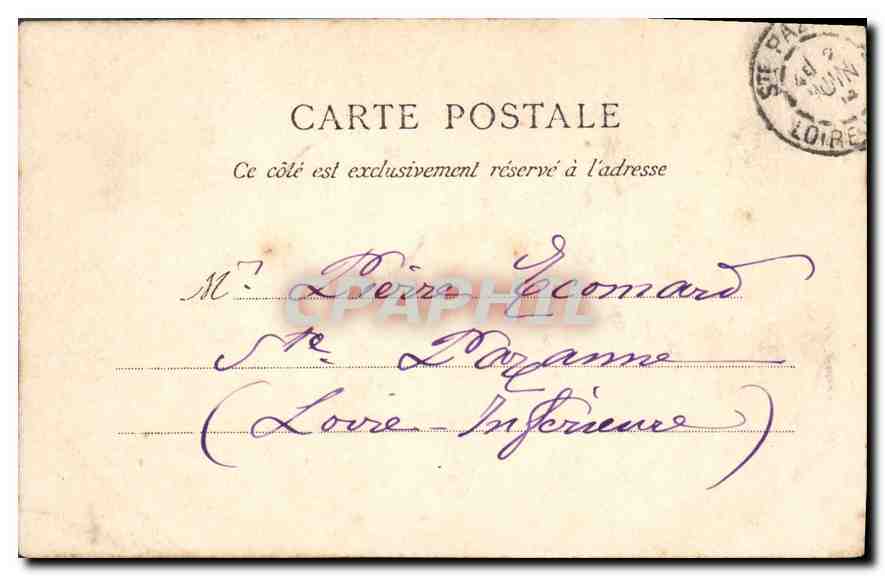 CARTE POSTALE
Ce côté est exclusivement réservé à l'adresse
STE PAZ
JUIN
LOIRE
Mr. Pierre Ecomard
CPAPHIL
Ste Pazanne
(Loire-Inférieure)